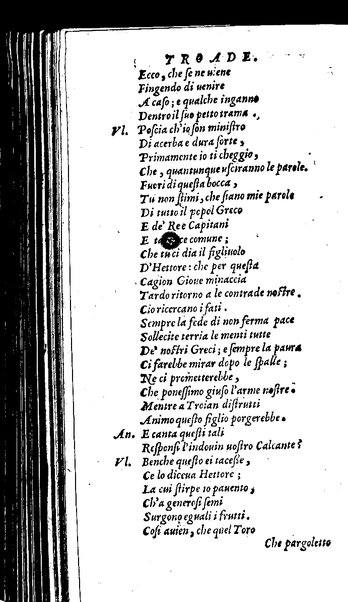 TROADE.
Ecco, che se ne uiene
Fingendo di uenire
A caso; e qualche inganno
Dentro il suo petto trama.
Vl. Poscia ch'io son ministro
Di acerba e dura sorte,
Primamente io ti cheggio,
Che, quantunque usciranno le parole
Fueri di questa bocca,
Tu non stimi, che siano mie parole
Di tutto il popol Greco
E de' Ree Capitani
E comune;
Che tu ci dia il figliuolo
D'Hettore: che per questa
Cagion Gioue minaccia
Tardo ritorno a le contrade nostre.
Cio ricercano i fati.
Sempre la fede di non ferma pace
Sollecite terria le menti tutte
De' nostri Greci; e sempre la paura
Ci farebbe mirar dopo le spalle;
Ne ci premetterebbe,
Che ponessimo giuso l'arme nostre.
Mentre a Troian distrutti
Animo questo figlio porgerebbe.
An. E canta questi tali
Responsi l'indouin uostro Calcante?
Vl. Benche questo ei tacesse,
Ce lo diceua Hettore;
La cui stirpe io pauento,
Ch'a generosi semi
Surgono eguali i frutti.
Cosi auien, che quel Toro
Che pargoletto